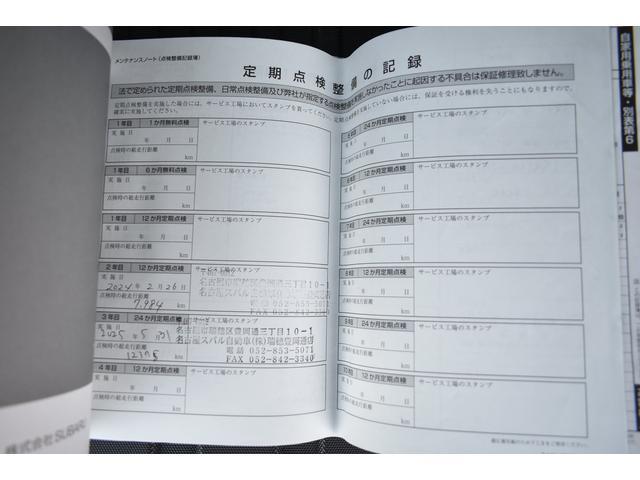 メンテナンスノート(点検整備記録簿)
定期点検整備の記録
法で定められた定期点検整備、日常点検整備及び弊社が指定する点検整備を実施しなかったことに起因する不具合は保証修理致しません。
1年目 1か月無料点検
サービス工場のスタンプ
実施日
年 月 日
点検時の総走行距離
km
1年目 6か月無料点検
サービス工場のスタンプ
実施日
年 月 日
点検時の総走行距離
km
1年目 12か月定期点検
サービス工場のスタンプ
実施日
年 月 日
点検時の総走行距離
km
2年目 12か月定期点検
サービス工場のスタンプ
実施日
2024年2月26日
点検時の総走行距離
7,984 km
3年目 24か月定期点検
実施日
2025年5月
点検時の総走行距離
km
名古屋市瑞穂区豊岡通三丁目10-1
名古屋スバル自動車(株)瑞穂豊岡通店
電話 052-853-5071
FAX 052-842-3340
4年目 12か月定期点検
サービス工場のスタンプ
実施日
年 月 日
点検時の総走行距離
km
24か月定期点検
サービス工場のスタンプ
年 月 日
点検時の総走行距離
km
12か月定期点検
サービス工場のスタンプ
年 月 日
点検時の総走行距離
km
24か月定期点検
サービス工場のスタンプ
年 月 日
点検時の総走行距離
km
12か月定期点検
サービス工場のスタンプ
年 月 日
点検時の総走行距離
km
24か月定期点検
サービス工場のスタンプ
年 月 日
点検時の総走行距離
km
12か月定期点検
サービス工場のスタンプ
年 月 日
点検時の総走行距離
km
自家用乗用車等・別表第6
株式会社SUBARU